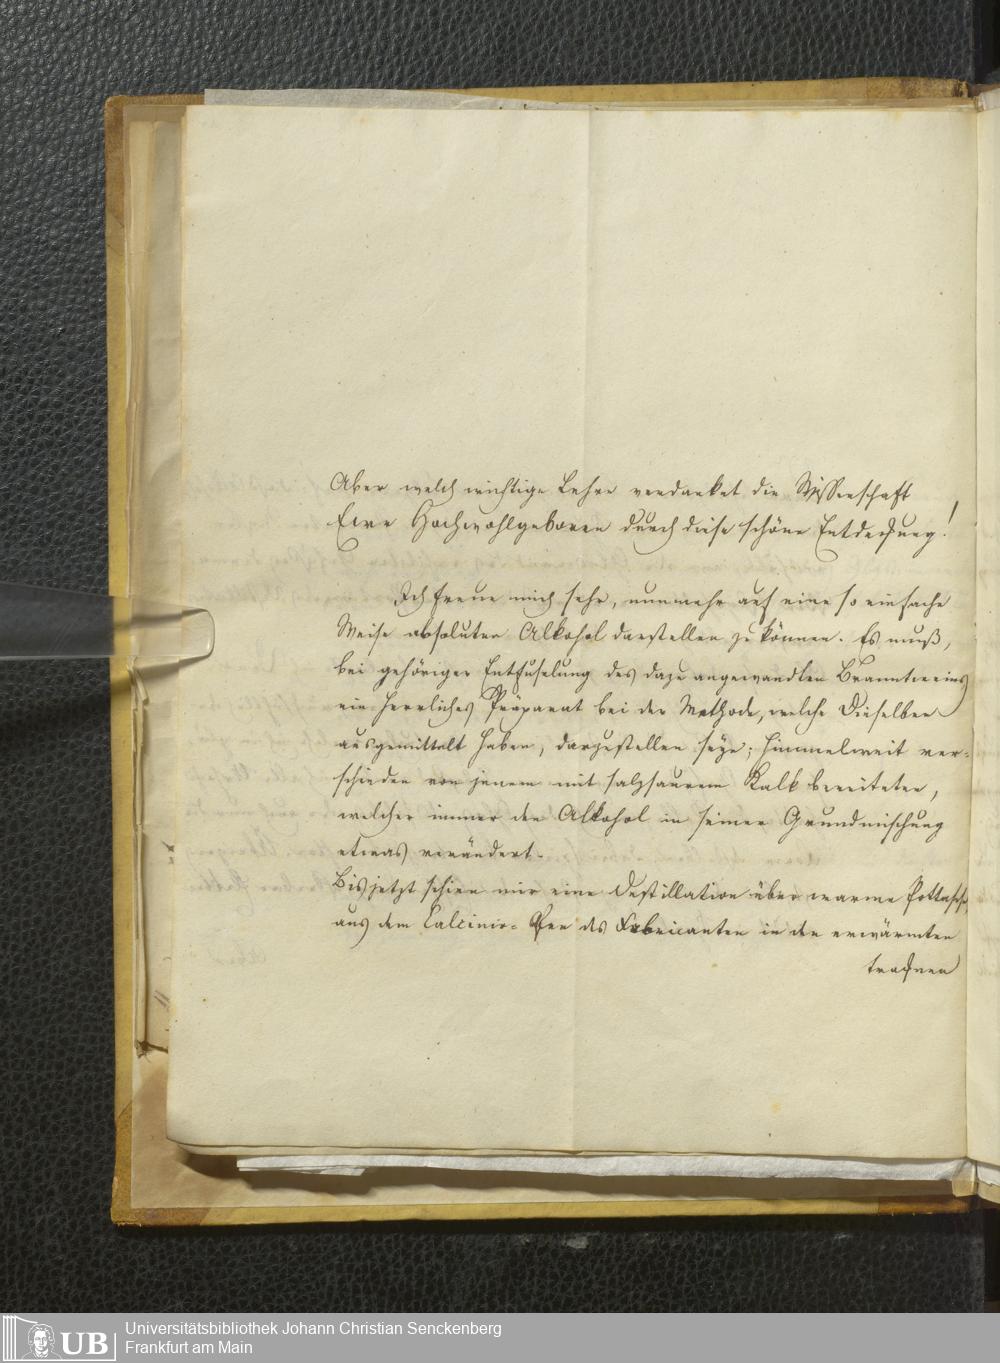 Aber welch wichtige Lehre verdanket die Wissenschaft
Eure Hochwohlgeboren durch diese schöne Entdeckung!
Ich freue mich sehr, nunmehr auf eine so einfache
Weise absoluten Alkohol darstellen zu können. Es muß,
bei gehöriger Entfuselung des dazu angewandten Branntweins
ein herrliches Präparat bei der Methode, welche Dieselben
ausgemittelt haben, darzustellen seye; himmelweit ver-
schieden von jenem mit salzsaurem Kalk bereiteten,
welcher immer den Alkohol in seiner Grundmischung
etwas verändert.
Bis jetzt schien mir eine Destillation über warme Pottasche
aus dem Calcinir-Ofen des Fabricanten in den erwärmten
trocknen
UB
Universitätsbibliothek Johann Christian Senckenberg
Frankfurt am Main